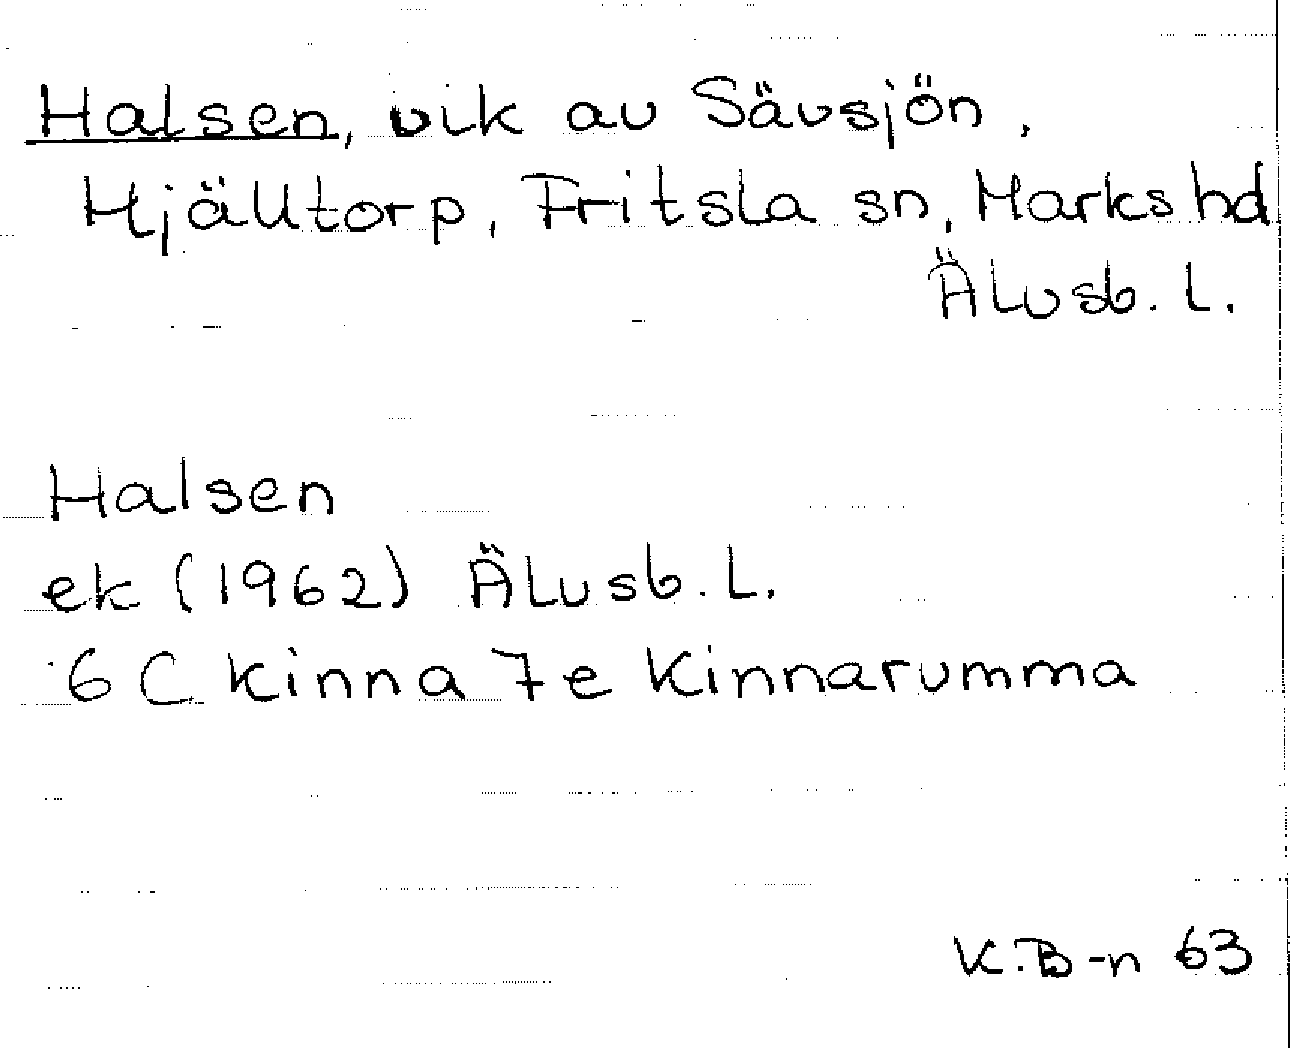 Halsen, vik av Sävsjön,
Hjälltorp, Fritsla sn, Marks hd
Älvsb. L.
Halsen
ek (1962) Älvsb. L.
6 C Kinna 7e Kinnarumma
K.B-n 63